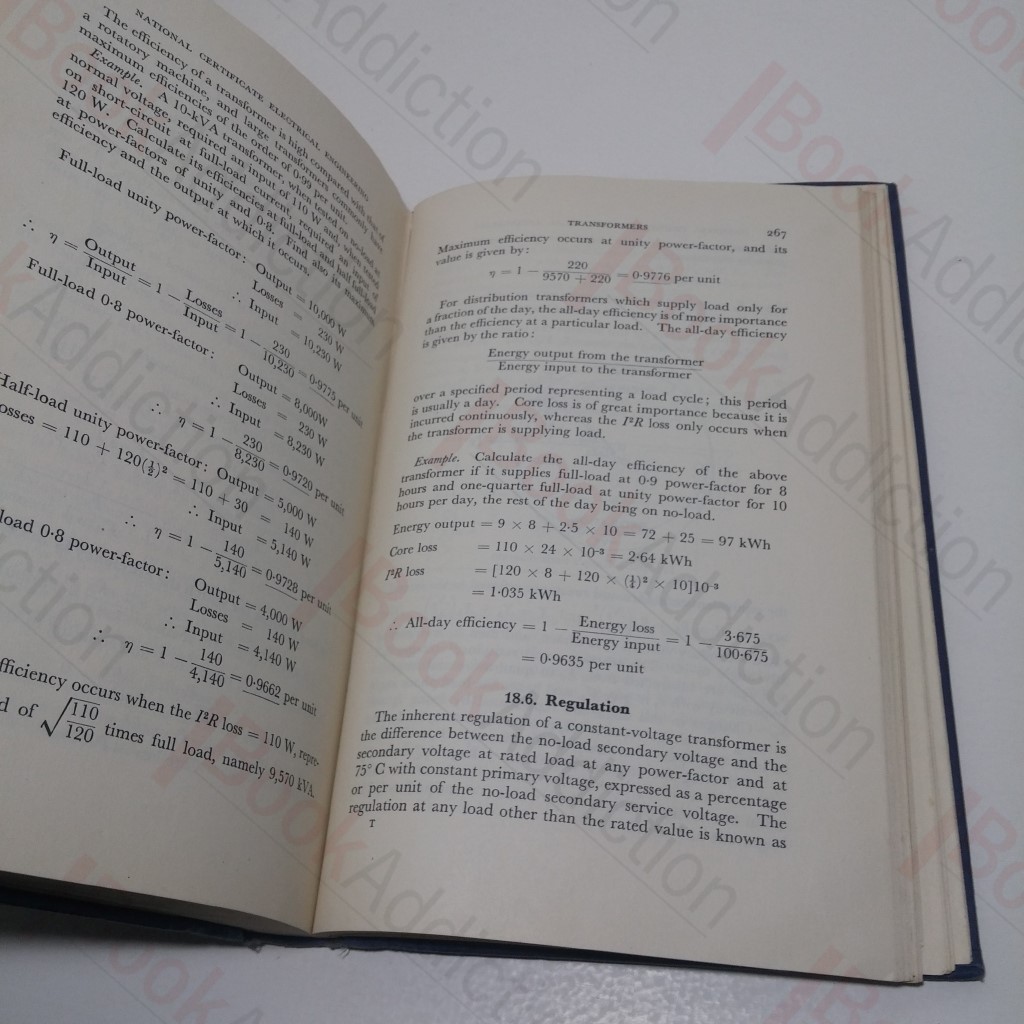 NATIONAL CERTIFICATE ELECTRICAL ENGINEERING
The efficiency of a transformer is high compared with that of
a rotatory machine, and large transformers commonly have
maximum efficiencies of the order of 0·99 per unit.
Example. A 10-kVA transformer, when tested on no-load at
normal voltage, required an input of 110 W and when tested
on short-circuit at full-load current, required an input of
120 W. Calculate its efficiencies at full-load and half full-load
at power-factors of unity and 0·8. Find also its maximum
efficiency and the output at which it occurs.
Full-load unity power-factor: Output = 10,000 W
Losses = 230 W
∴ Input = 10,230 W
∴ η = Output/Input = 1 − Losses/Input = 1 − 230/10,230 = 0·9775 per unit
Full-load 0·8 power-factor: Output = 8,000W
Losses = 230 W
∴ Input = 8,230 W
∴ η = 1 − 230/8,230 = 0·9720 per unit
Half-load unity power-factor: Output = 5,000 W
osses = 110 + 120(½)² = 110 + 30 = 140 W
∴ Input = 5,140 W
∴ η = 1 − 140/5,140 = 0·9728 per unit
load 0·8 power-factor: Output = 4,000 W
Losses = 140 W
∴ Input = 4,140 W
∴ η = 1 − 140/4,140 = 0·9662 per unit
fficiency occurs when the I²R loss = 110 W, repre-
d of √110/120 times full load, namely 9,570 kVA
TRANSFORMERS 267
Maximum efficiency occurs at unity power-factor, and its
value is given by:
η = 1 − 220/9570 + 220 = 0·9776 per unit
For distribution transformers which supply load only for
a fraction of the day, the all-day efficiency is of more importance
than the efficiency at a particular load. The all-day efficiency
is given by the ratio:
Energy output from the transformer
Energy input to the transformer
over a specified period representing a load cycle; this period
is usually a day. Core loss is of great importance because it is
incurred continuously, whereas the I²R loss only occurs when
the transformer is supplying load.
Example. Calculate the all-day efficiency of the above
transformer if it supplies full-load at 0·9 power-factor for 8
hours and one-quarter full-load at unity power-factor for 10
hours per day, the rest of the day being on no-load.
Energy output = 9 × 8 + 2·5 × 10 = 72 + 25 = 97 kWh
Core loss = 110 × 24 × 10⁻³ = 2·64 kWh
I²R loss = [120 × 8 + 120 × (¼)² × 10]10⁻³
= 1·035 kWh
∴ All-day efficiency = 1 − Energy loss/Energy input = 1 − 3·675/100·675
= 0·9635 per unit
18.6. Regulation
The inherent regulation of a constant-voltage transformer is
the difference between the no-load secondary voltage and the
secondary voltage at rated load at any power-factor and at
75° C with constant primary voltage, expressed as a percentage
or per unit of the no-load secondary service voltage. The
regulation at any load other than the rated value is known as
T
BookAddiction